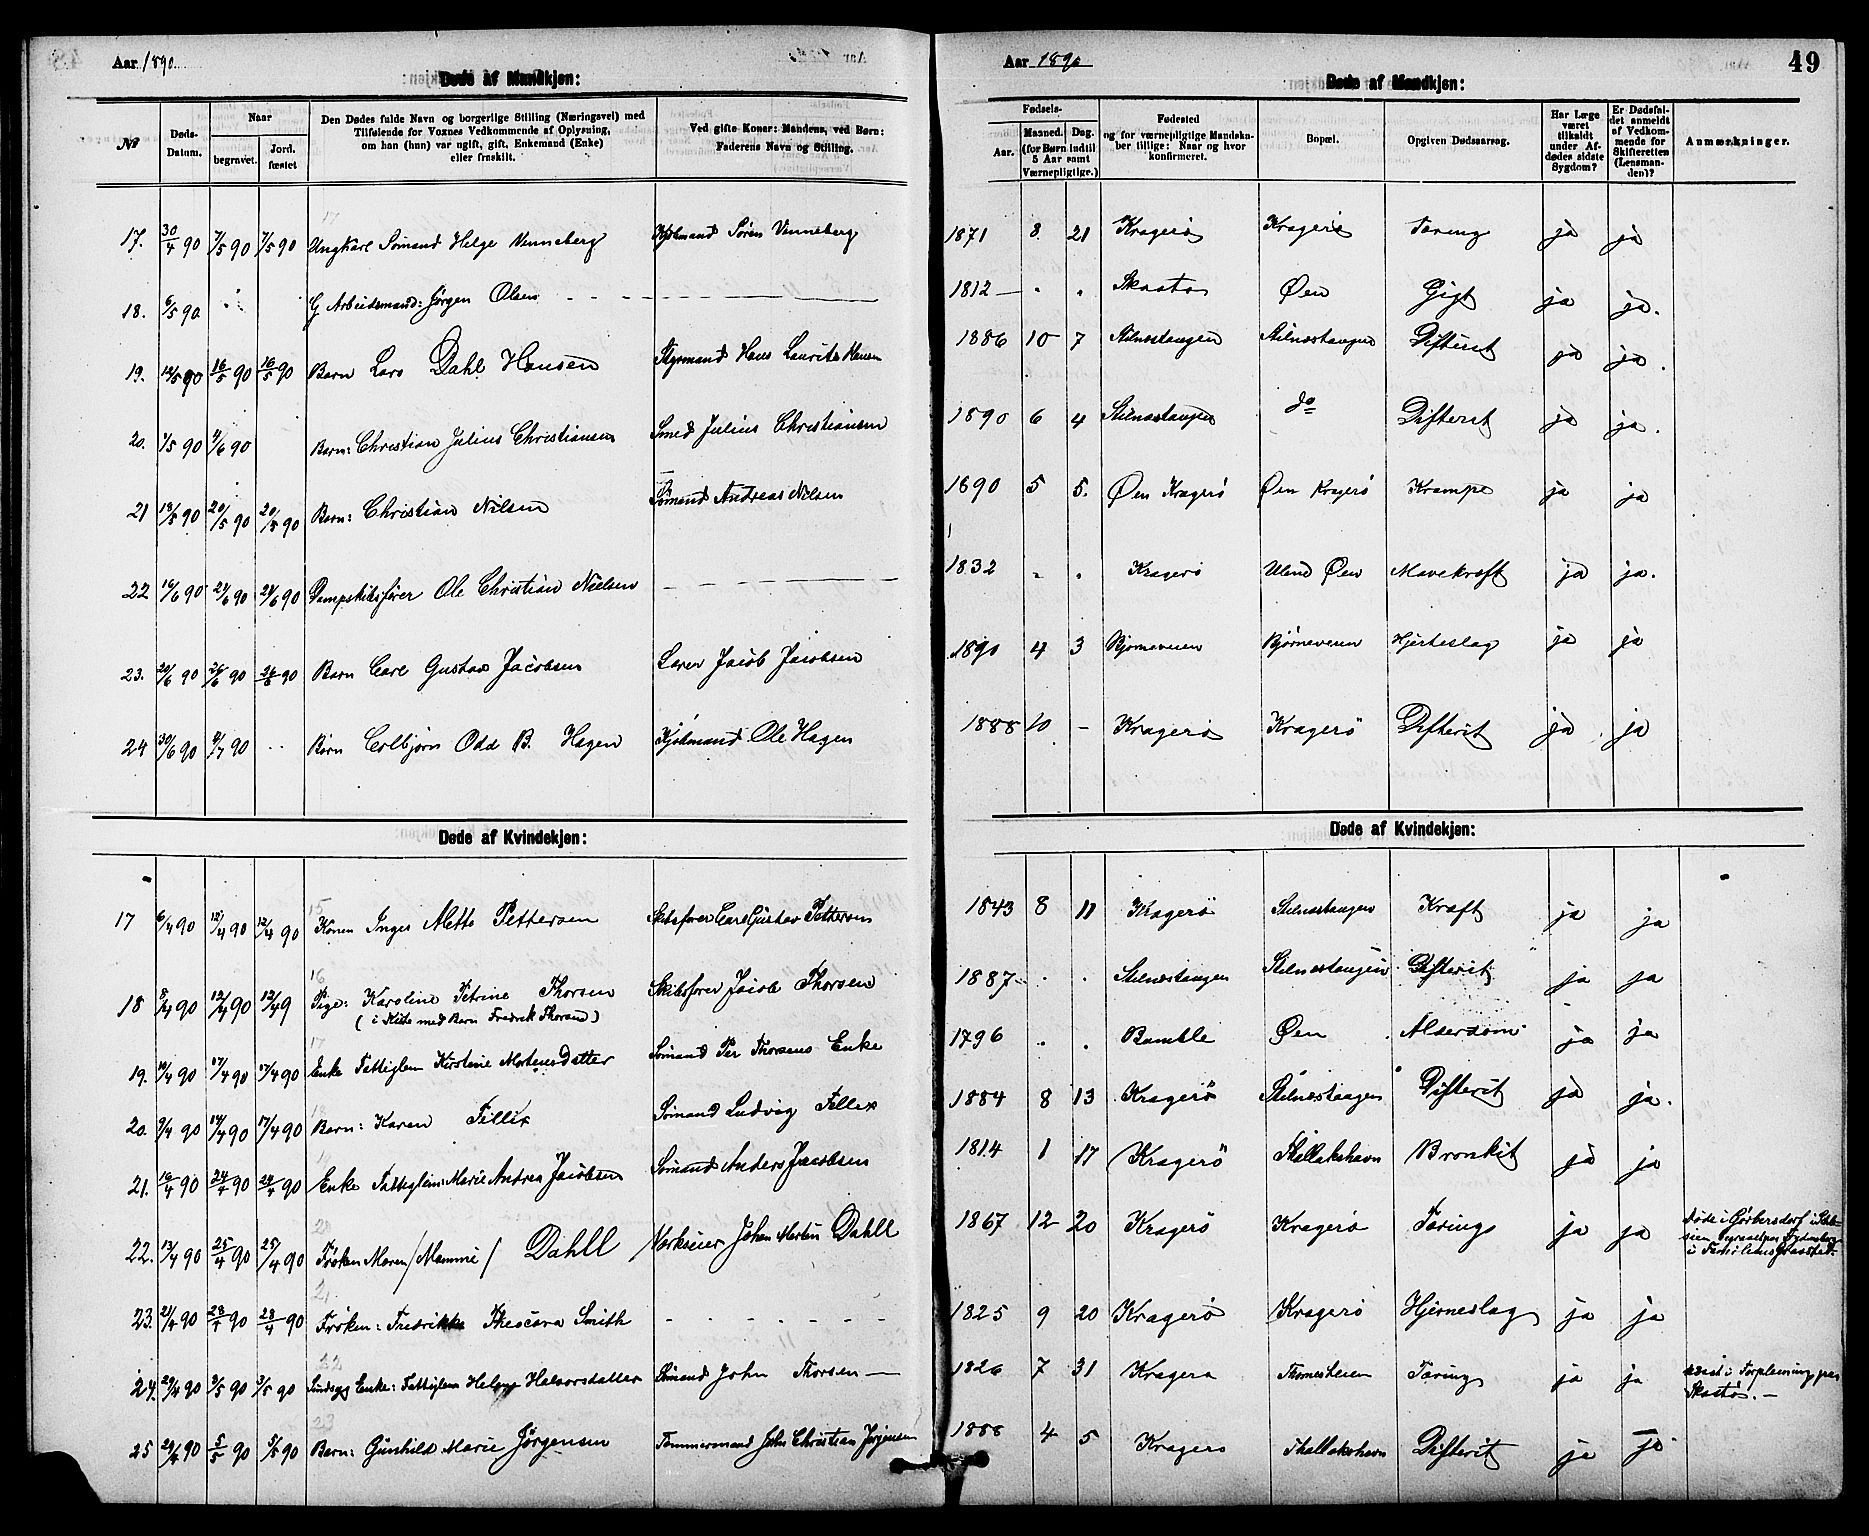 Aar 1890.
Døde af Mandkjøn:
№
Døds-Datum.
Naar
begravet.
Jord. fæstet
Den Dødes fulde Navn og borgerlige Stilling (Næringsvei) med
Tilføiende for Voxnes Vedkommende af Oplysning,
om han (hun) var ugift, gift, Enkemand (Enke)
eller fraskilt.
Ved gifte Koner: Mandens, ved Børn:
Faderens Navn og Stilling.
17. 30/4 90 7/5 90 7/5 90 Ungkarl Sømand Helge Venneberg Kjøbmand Søren Venneberg
18. 6/5 90 G Arbeidsmand: Jørgen Olsen
19. 12/5 90 16/5 90 16/5 90 Barn Lars Dahl Hansen Styrmand Hans Laurits Hansen
20. 1/5 90 4/6 90 Barn: Christian Julius Christiansen Smed Julius Christiansen
21 13/5 90 20/5 90 20/5 90 Barn: Christian Nilsen Sømand Andreas Nilsen
22 16/6 90 21/6 90 21/6 90 Dampskibsfører Ole Christian Nielsen
23. 20/6 90 26/6 90 26/6 90 Barn Carl Gustav Jacobsen Jacob Jacobsen
24 30/6 90 4/7 90 Barn Colbjørn Odd B. Hagen Kjøbmand Ole Hagen
Døde af Kvindekjøn:
17 6/4 90 12/4 90 12/4 90 Konen Inger Mette Pettersen Skibsfører Carl Gustav Pettersen
18 8/4 90 12/4 90 12/4 9 Pige: Karoline Petrine Thorsen Skibsfører Jacob Thorsen
(i Kiste med Barn Fredrik Thorsen)
19. 10/4 90 17/4 90 17/4 90 Enke Fattiglem Kirstine MortensDatter Sømand Per Thorsens Enke
20. 9/4 90 14/4 90 17/4 90 Barn: Karen Fillix Sømand Ludvig Fillix
21. 16/4 90 24/4 90 24/4 90 Enke Fattiglem: Marie Andrea Jacobsen Sømand Anders Jacobsen
22. 13/4 90 25/4 90 25/4 90 Frøken Maren /Mamme/ Dahll Værkseier Johan Martin Dahll
23. 21/4 90 28/4 90 28/4 90 Frøken: Fredrikke Theodora Smith
24. 29/4 90 3/5 90 3/5 90 Sindsyg Enke: Fattiglem Helene Halvorsdatter Sømand John Thorsen
25 29/4 90 5/5 90 5/5 90 Barn: Gunhild Marie Jørgensen Tømmermand John Christian Jørgensen
Aar 1890
49
Døde af Mandkjøn:
Fødsels-
Aar.
Maaned. Dag.
(for Børn indtil
5 Aar samt
Værnepligtige.)
Fødested
og for værnepligtige Mandskaber tillige: Naar og hvor
konfirmeret.
Bopæl.
Opgiven Dødsaarsag.
Har Læge
været
tilkaldt
under Afdødes sidste
Sygdom?
Er Dødsfaldet anmeldt
af Vedkommende for
Skifteretten
(Lensmanden)?
Anmærkninger.
1871 8. 21 Kragerø Kragerø Tæring ja ja
1812 Skaatø Øen Gigt ja ja.
1886 10 7 Stilnæstangen Stilnæstangen Difterit ja ja.
1890 6 4 Stilnæstangen do Difterit ja ja.
1890 5 5. Øen Kragerø Øen Kragerø Krampe ja ja
1832 Kragerø Øen Mavekræft ja ja.
1890 4 3 Bjørneveien Bjørneveien Hjerteslag ja ja
1888 10 - Kragerø Kragerø Difterit ja ja
Døde af Kvindekjøn:
1843 8 11 Kragerø Stilnæstangen Kræft ja ja
1887 Stilnæstangen Stilnæstangen Difterit ja ja
1796 Bamble Øen Alderdom ja ja
1884 8 13 Kragerø Stilnæstangen Difterit ja ja.
1814 1 17 Kragerø Thallakshavn Bronkit ja ja
1867 12 20 Kragerø Kragerø Tæring ja ja Døde i Görbersdorf i Schlesien
1825 9 20 Kragerø Kragerø Hjerneslag ja ja
1826 7 31 Kragerø Tæring ja ja i Forpleining paa
Skaatø.
1888 4 5 Kragerø Thallakshavn Difterit ja ja